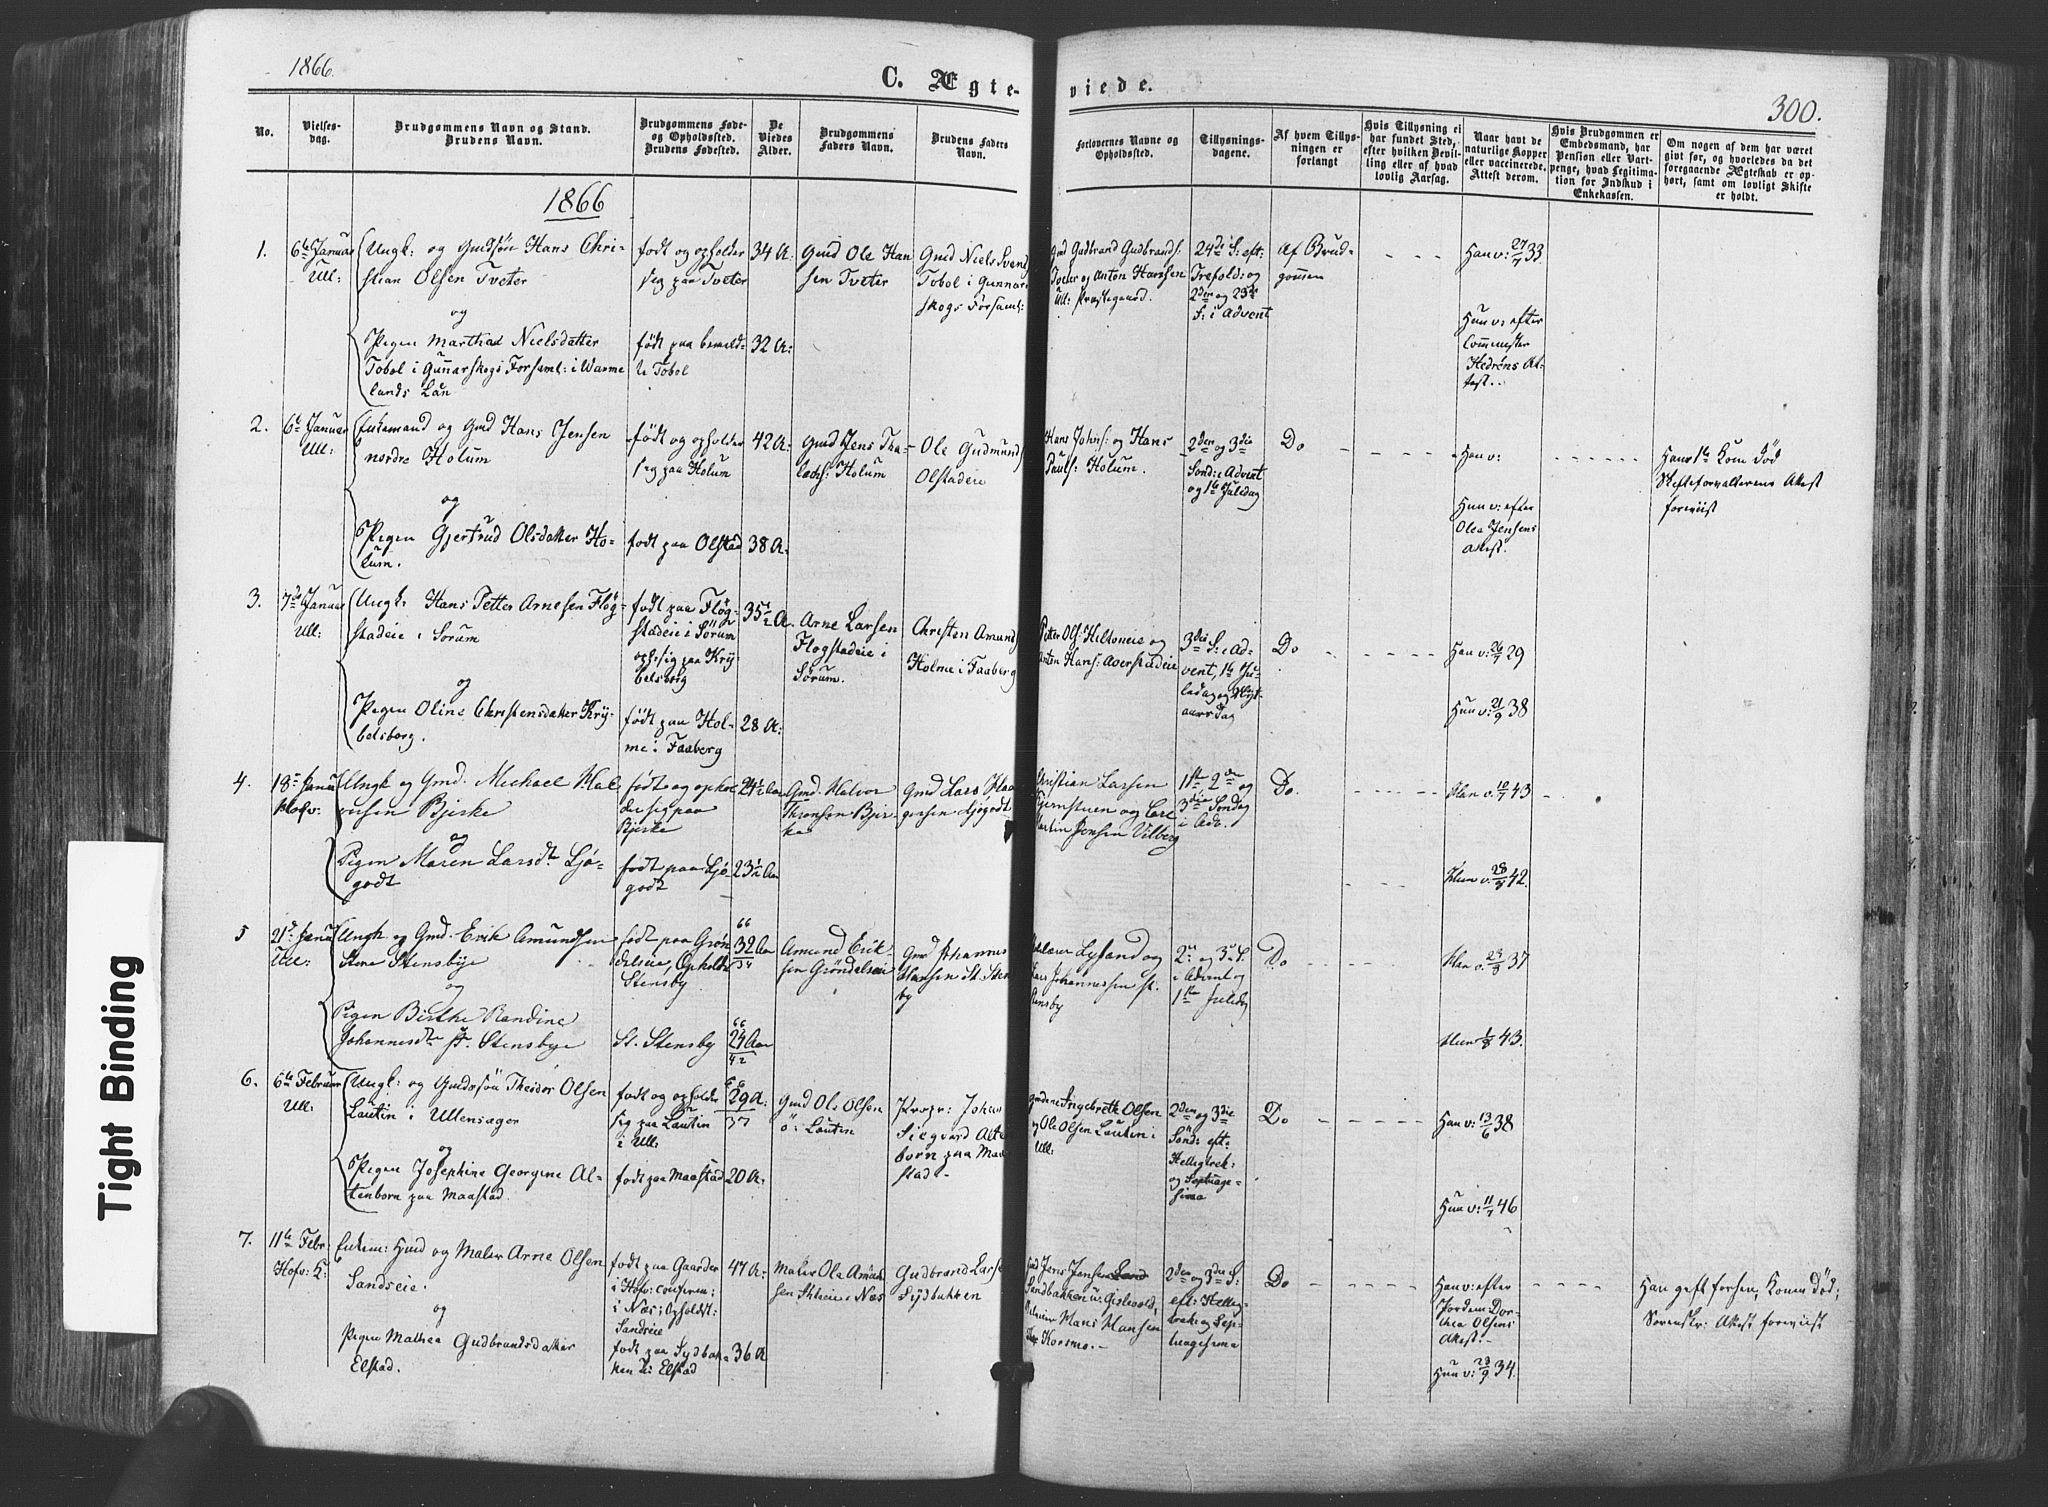 1866.
C. Ægte-
viede.
300.
No.
Vielses-
dag.
Brudgommens Navn og Stand.
Brudens Navn.
Brudgommens Føde-
og Opholdssted.
Brudens Fødested.
De
Viedes
Alder.
Brudgommens
Faders Navn.
Brudens Faders
Navn.
Forlovernes Navne og
Opholdssted.
Tillysnings-
dagene.
Af hvem Tillys-
ningen er
forlangt
Hvis Tillysning ei
har fundet Sted,
efter hvilken Bevil-
ling eller af hvad
lovlig Aarsag.
Naar havt de
naturlige Kopper
eller vaccinerede.
Attest derom.
Hvis Brudgommen er
Embedsmand, har
Pension eller Vart-
penge, hvad Legitima-
tion for Indskud i
Enkekassen.
Om nogen af dem har været
gift før, og hvorledes da det
foregaaende Ægteskab er op-
hørt, samt om lovligt Skifte
er holdt.
1866
1.
6te Januar
Ull:
Ungk: og Gmdsøn Hans Chri-
stian Olsen Tveter
og
Pigen Marthea Nielsdatter
Tobol i Gunnarskogs Forsaml: i Warme
lands Län
født og opholder
sig paa Tveter
født paa bemeld-
te Tobol
34 A:
32 A:
Gmd Ole Han
sen Tveter
Gmd Niels Svend
Tobol i Gunnar
skogs Forsaml:
Gmd Gudbrand Gudbrands.
Tveter og Anton Hanssen
Ull: Præstegaard.
24de S: eft:
Trefold: og
2den og 23de
S: i Advent
Af Brud-
gommen
Han v: 27/7 33
Hun v: efter
Comminister
Hedréns At-
test..
2.
6te Januar
Ull:
Enkemand og Gmd Hans Jensen
nordre Holum
og
Pigen Gjertrud Olsdatter Ho-
lum.
født og opholder
sig paa Holum
født paa Olstad
42 A:
38 A:
Gmd Jens Tha-
lachs: Holum
Ole Gudmunds
Olstadeie
Hans Johns: og Hans
Pauls: Holum.
2den og 3die
Sønd: i Advent
og 1te Juledag
Do
Han v:
Hun v: efter
Olea Jensens
Attest.
Hans 1te Kone død
Skifteforvalterens Attest
foreviist
3.
7de Januar
Ull:
Ungk: Hans Petter Arnesen Flog-
stadeie i Sørum
og
Pigen Oline Christensdatter Kry-
belsborg.
født paa Flog-
stadeie i Sørum
oph: sig paa Kry
belsborg
født paa Hol-
me i Faaberg
35½ A.
28 A:
Arne Larsen
Flogstadeie i
Sørum.
Christen Amund
Holme i Faaberg
Petter Ols: Hiltoneie og
Anton Hans: Averstadeie
3die S: i Ad-
vent, 1te Ju-
ledag og Nyt-
aarsdag
Do
Han v: 26/7 29
Hun v: 21/9 38
4.
18de Janu
Hofv:
Ungk og Gmd. Michael Hal
vorsen Bjerke
og
Pigen Maren Larsdtr Ljø-
godt
født og ophol
der sig paa
Bjerke
født paa Ljø-
godt
24½ Aar
23½ Aar
Gmd. Halvor
Thronsen Bjer-
ke
Gmd Lars Haa
gensen Ljøgodt
Christian Larsen
Hjernstuen og Carl
Martin Jensen Vilberg
1ste 2den og
3die Søndag
i Adv.
Do.
Han v. 10/7 43
Hun v. 28/9 42.
5
21de Janu
Ull:
Ungk. og Gmd. Erik Amundsen
Store Stensbye
og
Pigen Birthe Randine
Johannesdtr St. Stensbye
født paa Grøn
delseie, Opholds
Stensby
St. Stensby
66
32 Aar
34
66
24 Aar
42
Amund Erik-
sen Grøndelseie
Gmd Johannes
Hansen St. Stens
by
Lysand og
Lars Johannessen st.
Stensby
2den og 3de S.
i Advent og
1ste Juledag
Do
Han v. 24/9 37
Hun 1/8 43.
6.
6te Februar
Ull:
Ungk: og Gmdssøn Theodor Olsen
Lautin i Ullensager
og
Pigen Josephine Georgine Al-
tenborn paa Maastad.
født og opholder
sig paa Lautin
i Ull:
født paa Maastad
66
29 A:
37
20 A:
Gmd Ole Olsen
ö: Lautin
Propr: Johan
Siegvard Alten
born paa Maa
stad-
Gmdene Ingebreth Olsen
og Ole Olsen Lautin i
Ull:
2den og 3die
Sønd: eft:
Helligtrek:
og Septuage-
sima
Do
Han v: 13/6 38
Hun v: 11/7 46
7.
11te Febr:
Hofv: K:
Enkem: Hmd og Maler Arne Olsen
Sandseie.
og
Pigen Mathea Gudbrandsdatter
Elstad.
født paa Gaarder
i Hofv: confirm:
i Næs; Opholdst:
Sandseie
født paa Sydbak-
ken u: Elstad
47 A:
36 A
Maler Ole Amund
sen Skleie i Næs
Gudbrand Larse
Sydbakken
Gmd Jens Jensen Sand
Sandbakken u: Gislevold,
Hans Hansen
Korsmo.-
2den og 3die S:
eft: Hellig-
trek: og Sep-
tuagesima
Do
Han v: efter
Jordem: Dor-
thea Olsens
Attest.-
Hun v: 29/9 34.
Han gift forhen, Konen død;
Sorenskr: Attest foreviist
Tight Binding